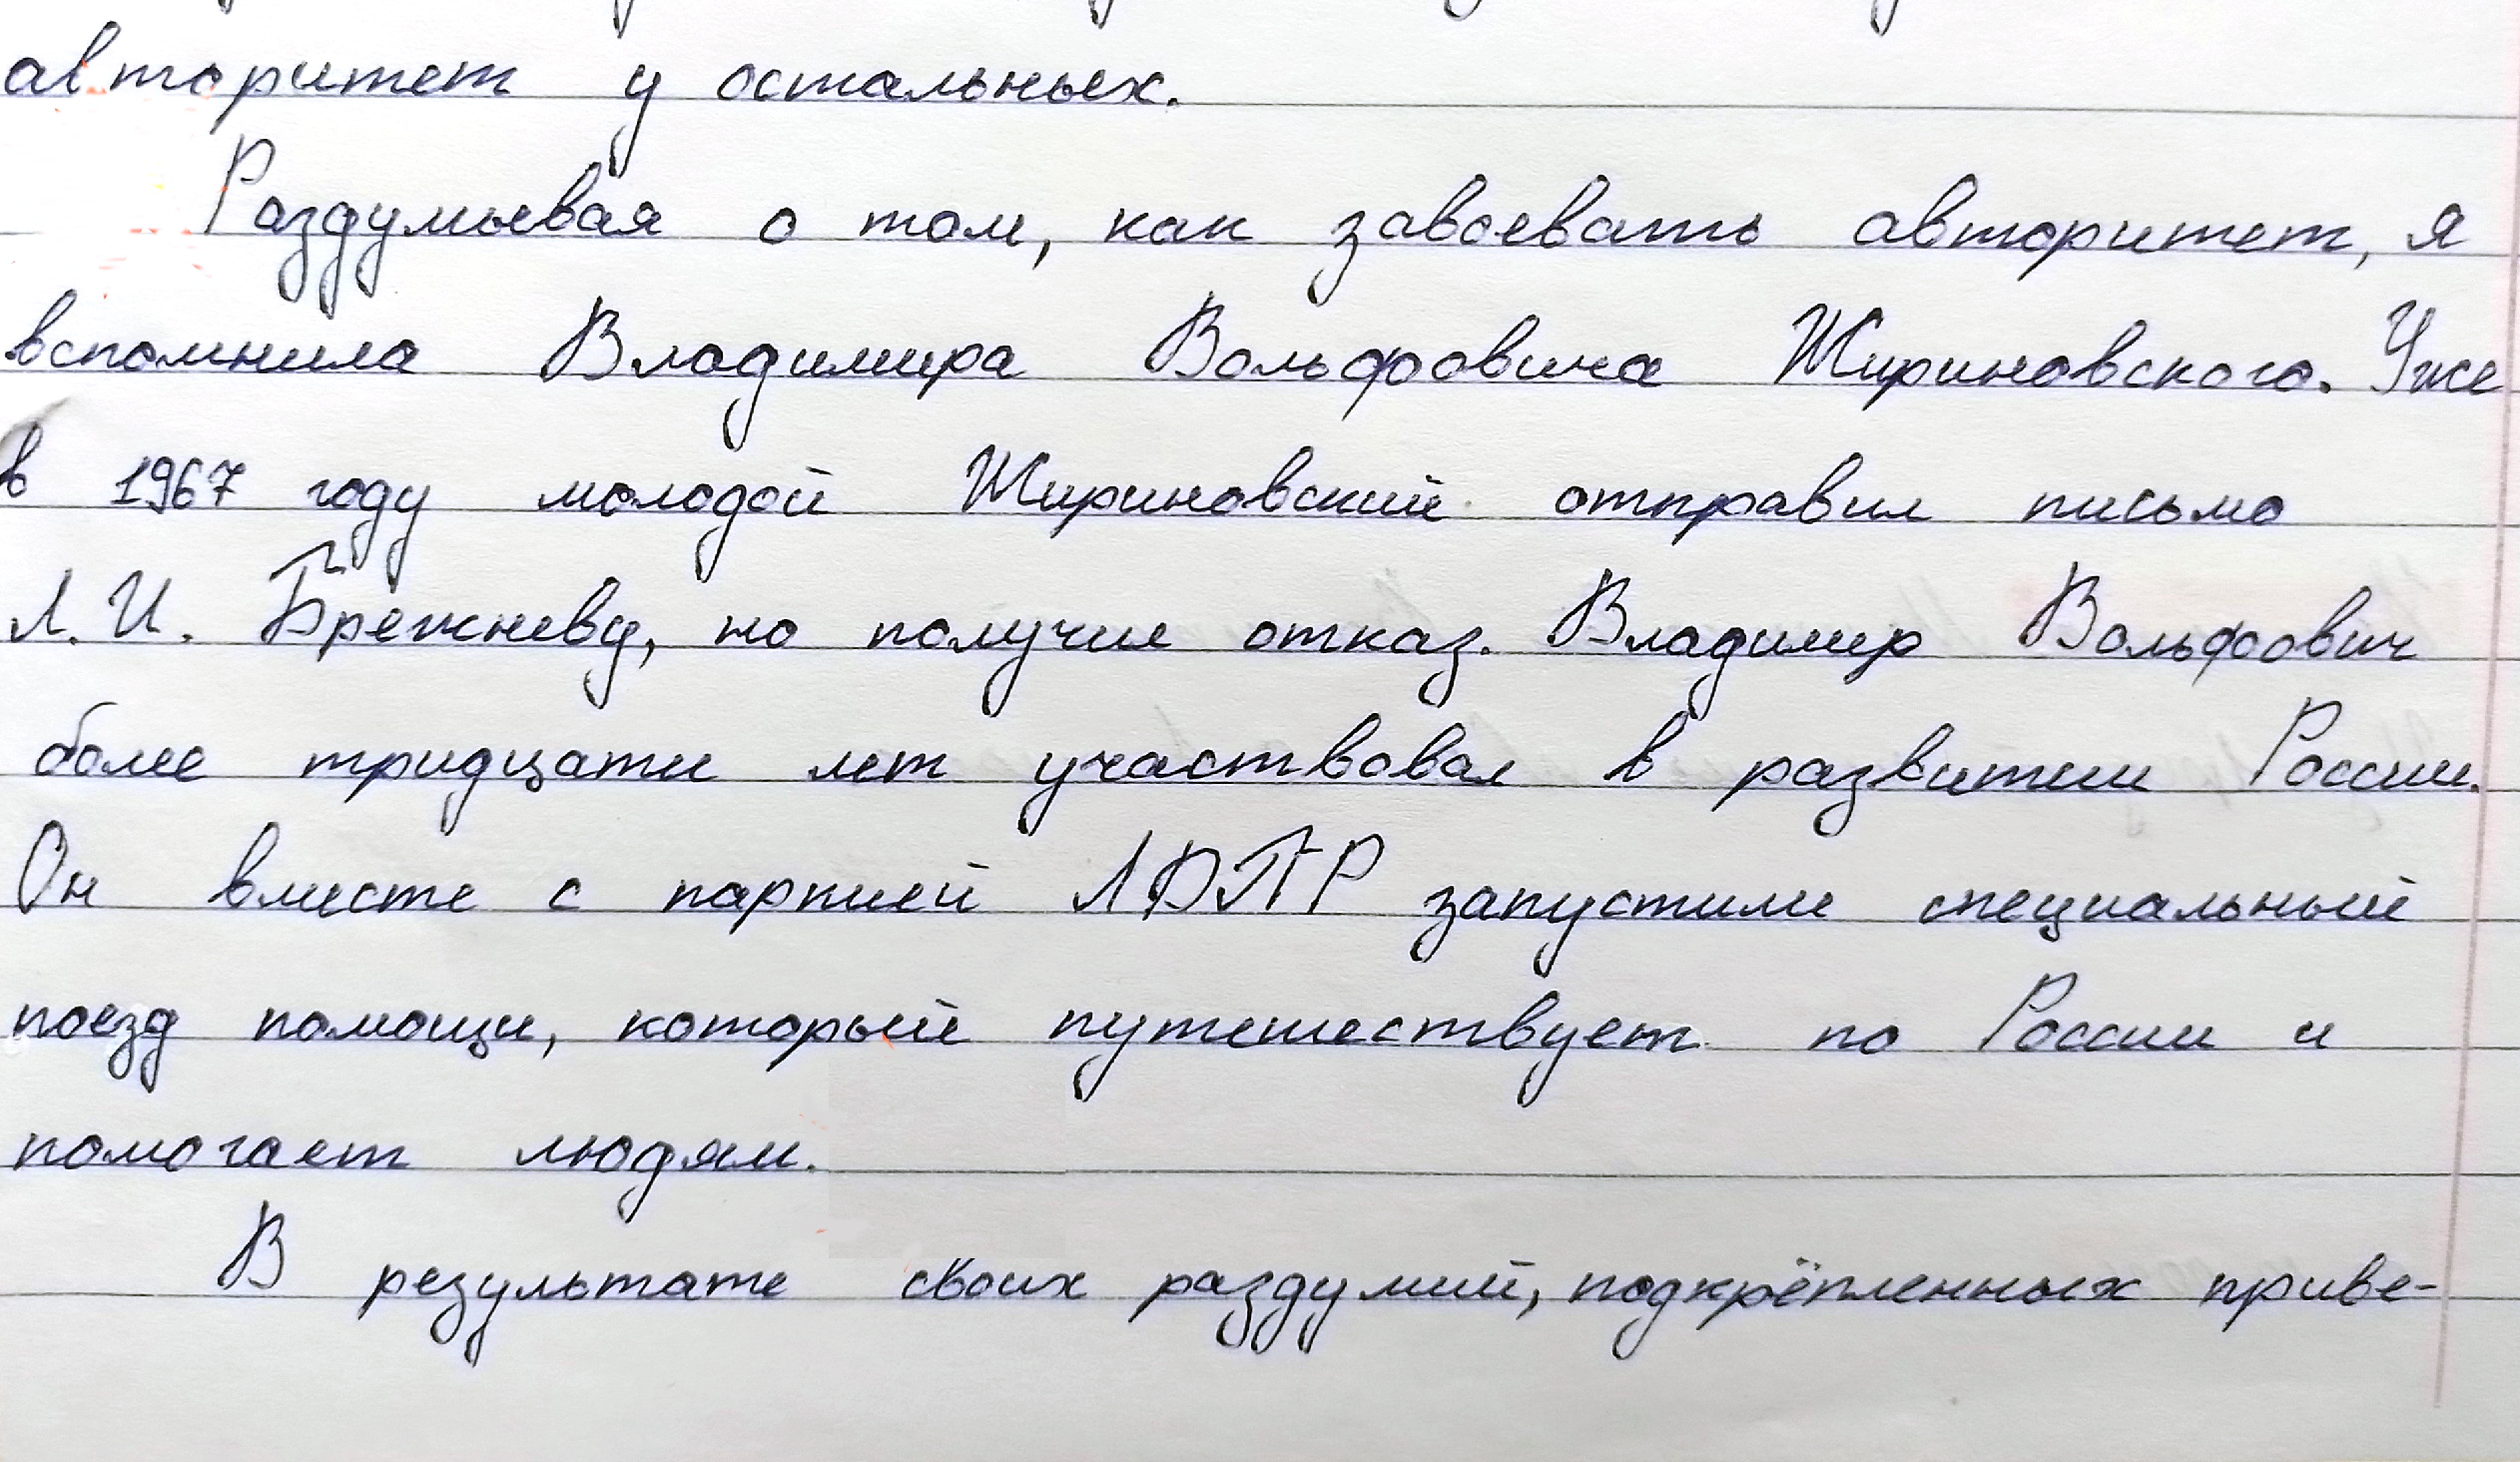 авторитет у остальных.
Раздумывая о том, как завоевать авторитет, я
вспомнила Владимира Вольфовича Жириновского. Уже
в 1967 году молодой Жириновский отправил письмо
Л. И. Брежневу, но получил отказ. Владимир Вольфович
более тридцати лет участвовал в развитии России.
Он вместе с партией ЛДПР запустили специальный
поезд помощи, который путешествует по России и
помогает людям.
В результате своих раздумий, подкреплённых приве-